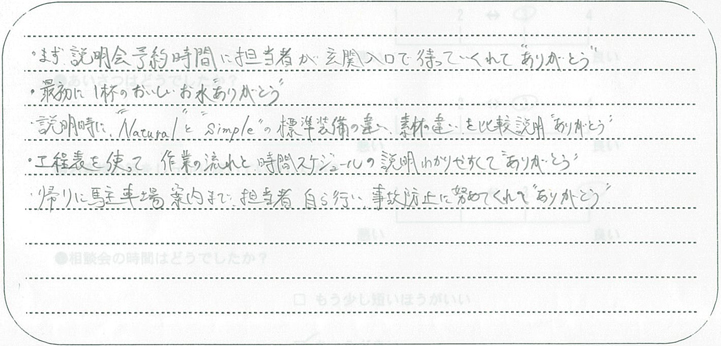 ・まず説明会予約時間に担当者が玄関入口で待っていてくれて"ありがとう"
・最初に1杯のおいしいお水"ありがとう"
・説明時に、"Natural"と"Simple"の標準装備の違い、素材の違いを比較説明"ありがとう"
・工程表を使って作業の流れと時間スケジュールの説明わかりやすくて"ありがとう"
・帰りに駐車場案内まで担当者自ら行い事故防止に努めてくれて"ありがとう"
●相談会の時間はどうでしたか？
□ もう少し短いほうがいい